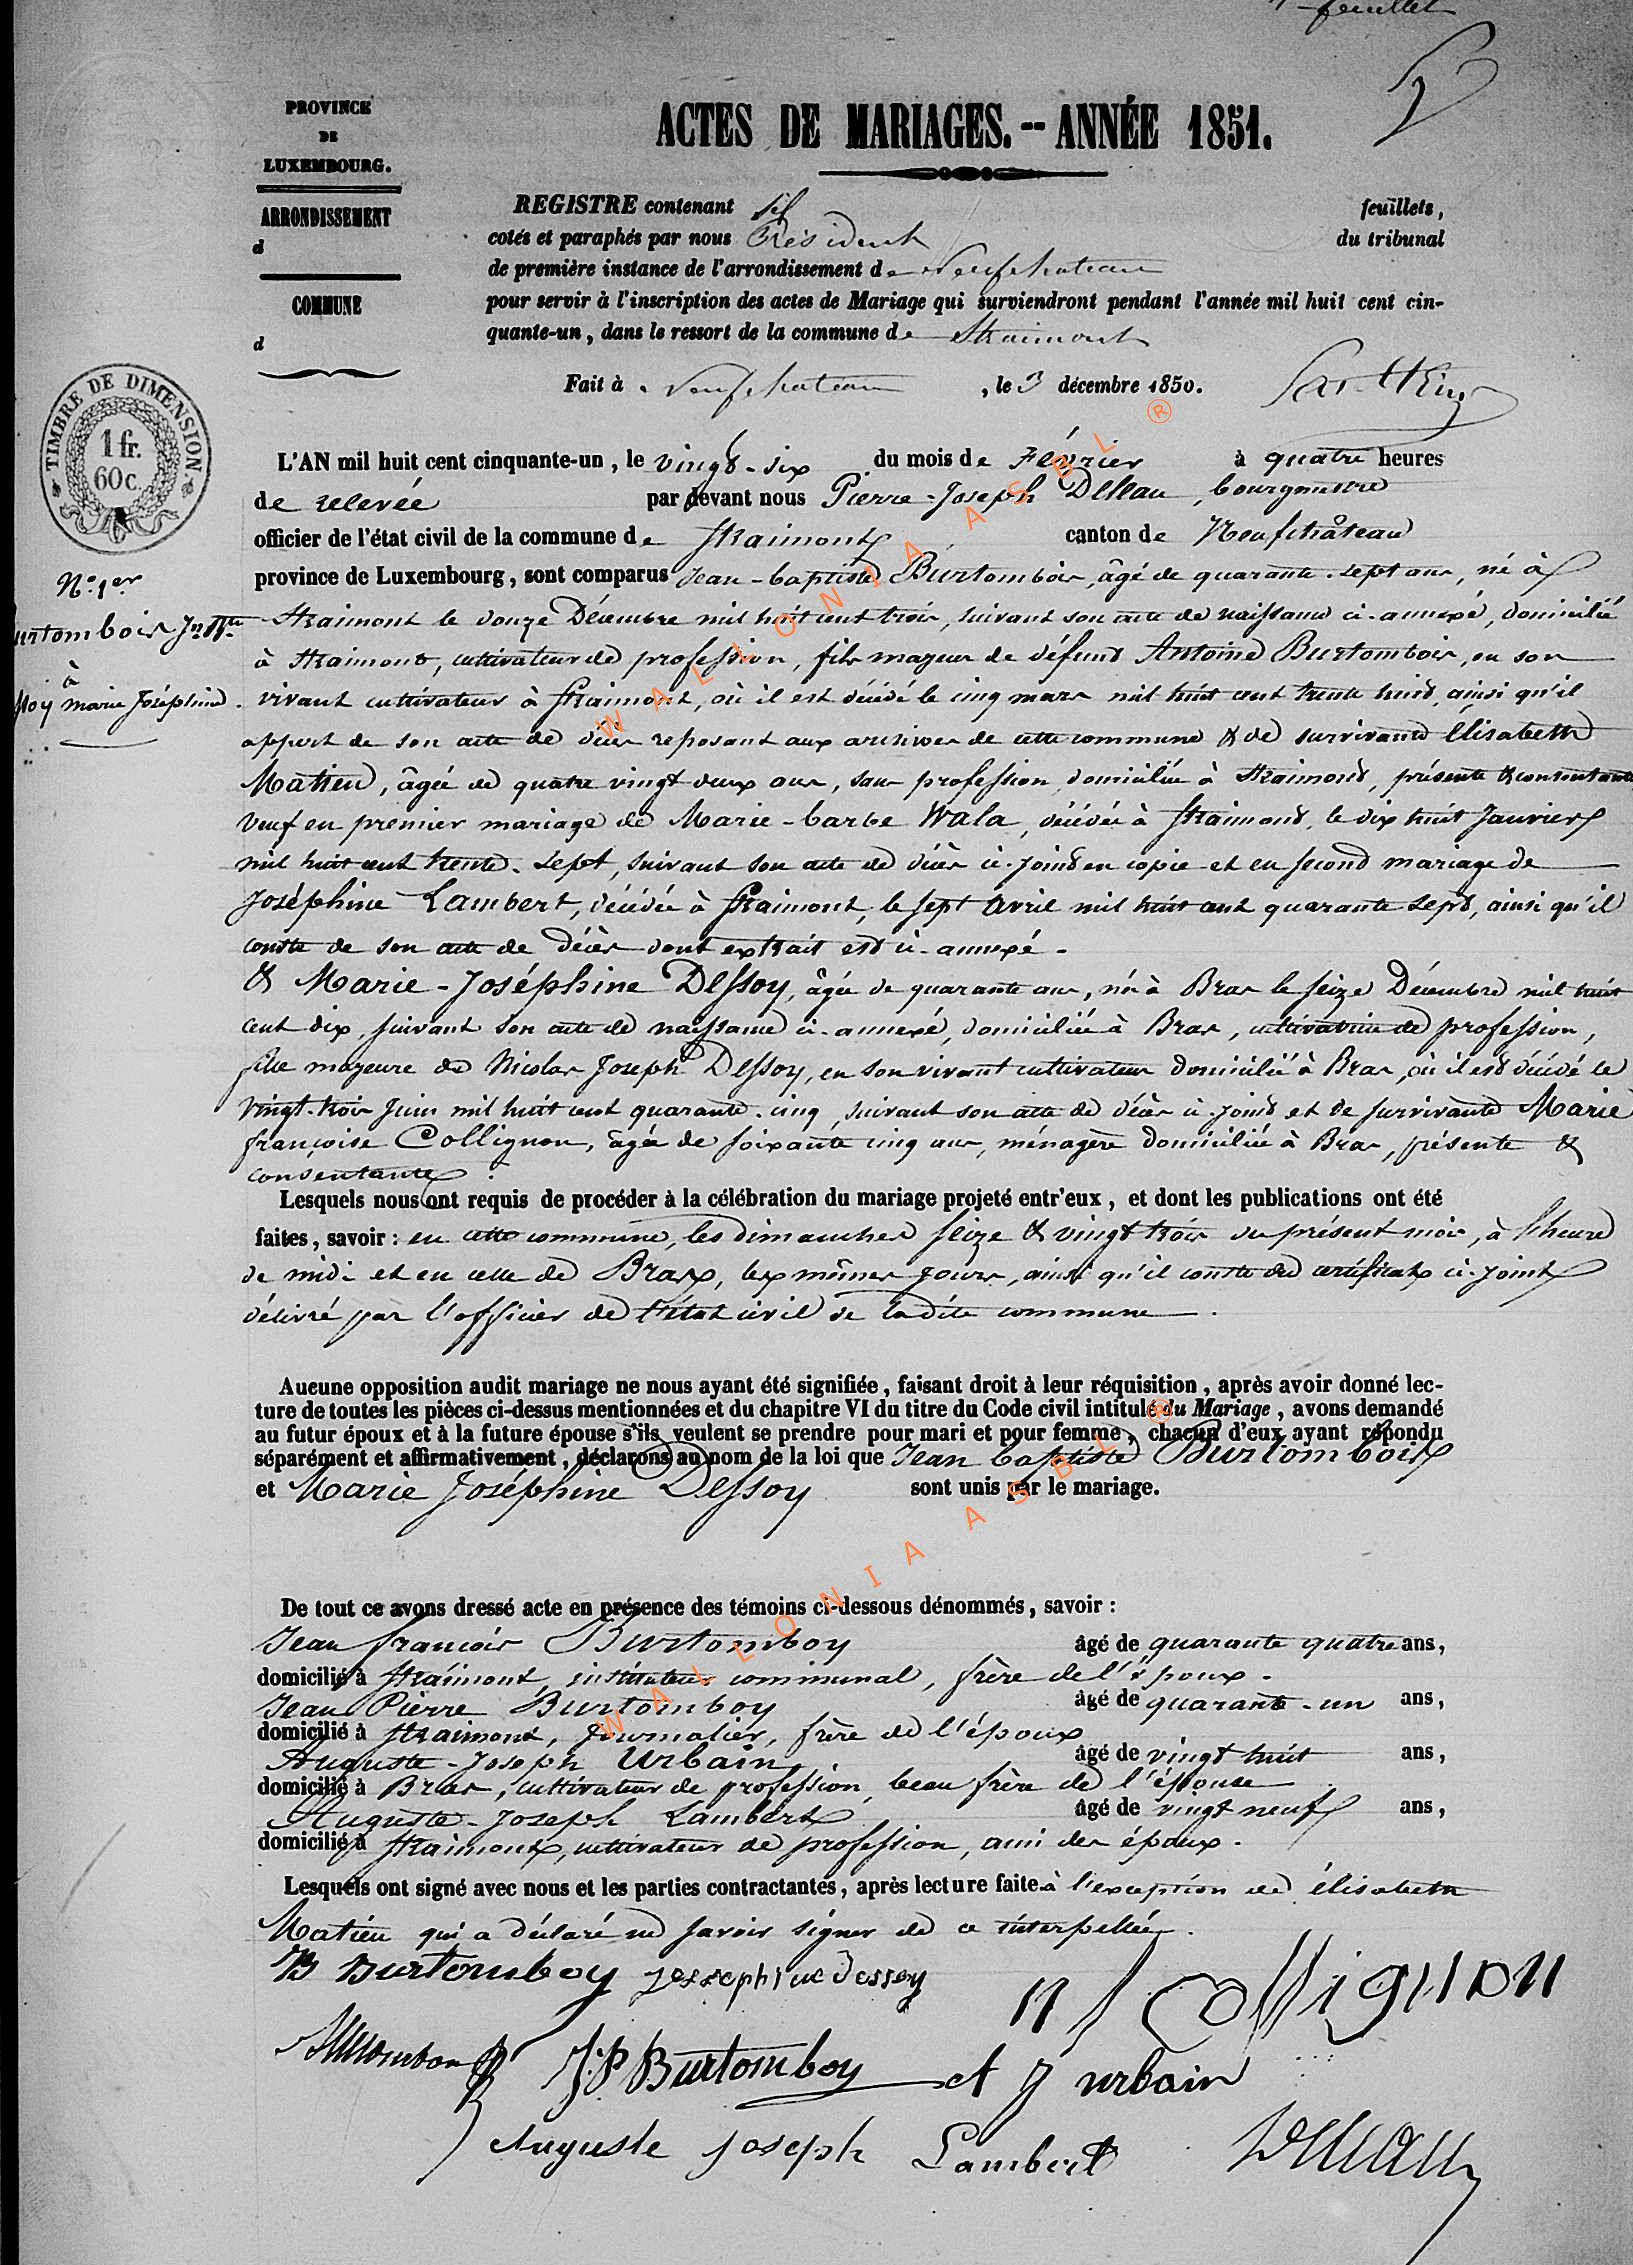 feuillet
PROVINCE
DE
LUXEMBOURG.
ARRONDISSEMENT
d
COMMUNE
d
ACTES DE MARIAGES.-- ANNÉE 1851.
REGISTRE contenant feuillets,
cotés et paraphés par nous Président du tribunal
de première instance de l'arrondissement de Neufchateau
pour servir à l'inscription des actes de Mariage qui surviendront pendant l'année mil huit cent cin-
quante-un, dans le ressort de la commune de Straimont
Fait à Neufchateau, le 3 décembre 1850.
TIMBRE DE DIMENSION.
1 fr.
60 c.
N° 1er
urtombois Jn Bte
à
soy marie Joséphine.
L'AN mil huit cent cinquante-un, le vingt-six du mois de Février à quatre heures
de relevée par devant nous Pierre-Joseph Delleau, bourgmestre
officier de l'état civil de la commune de Straimont canton de Neufchâteau
province de Luxembourg, sont comparus Jean-baptiste Burtombois, âgé de quarante-sept ans, né à
Straimont le douze Décembre mil huit cent trois, suivant son acte de naissance ci-annexé, domicilié
à Straimont, cultivateur de profession, fils majeur de défunt Antoine Burtombois, en son
vivant cultivateur à Straimont, où il est décédé le cinq mars mil huit cent trente huit, ainsi qu'il
appert de son acte de décès reposant aux archives de cette commune & de survivante Elisabeth
Matieu, âgée de quatre vingt deux ans, sans profession, domiciliée à Straimont, présente & consentante
Veuf en premier mariage de Marie-barbe Wala, décédée à Straimont, le dix huit Janvier
mil huit cent trente-sept, suivant son acte de décès ci-joint en copie et en second mariage de
Joséphine Lambert, décédée à Straimont, le sept Avril mil huit cent quarante sept, ainsi qu'il
conste de son acte de décès dont extrait est ci-annexé.
& Marie-Joséphine Dessoy, âgée de quarante ans, née à Bras le seize Décembre mil huit
cent dix, suivant son acte de naissance ci-annexé, domiciliée à Bras, cultivatrice de profession,
fille majeure de Nicolas Joseph Dessoy, en son vivant cultivateur domicilié à Bras, où il est décédé le
vingt-trois Juin mil huit cent quarante-cinq, suivant son acte de décès ci-joint et de survivante Marie
françoise Collignon, âgée de soixante cinq ans, ménagère domiciliée à Bras, présente &
consentante.
Lesquels nous ont requis de procéder à la célébration du mariage projeté entr'eux, et dont les publications ont été
faites, savoir: en cette commune, les dimanches seize & vingt trois du présent mois, à l'heure
de midi et en celle de Bras, les mêmes jours, ainsi qu'il conste du certificat ci-joint
délivré par l'officier de l'état civil de la dite commune.
Aucune opposition audit mariage ne nous ayant été signifiée, faisant droit à leur réquisition, après avoir donné lec-
ture de toutes les pièces ci-dessus mentionnées et du chapitre VI du titre du Code civil intitulé du Mariage, avons demandé
au futur époux et à la future épouse s'ils veulent se prendre pour mari et pour femme, chacun d'eux ayant répondu
séparément et affirmativement, déclarons au nom de la loi que Jean baptiste Burtombois
et Marie Joséphine Dessoy sont unis par le mariage.
De tout ce avons dressé acte en présence des témoins ci-dessous dénommés, savoir:
Jean françois Burtomboy âgé de quarante quatre ans,
domicilié à Straimont, instituteur communal, frère de l'époux.
Jean Pierre Burtomboy âgé de quarante-un ans,
domicilié à Straimont, Journalier, frère de l'époux
Auguste-Joseph Urbain âgé de vingt huit ans,
domicilié à Bras, cultivateur de profession, beau frère de l'épouse
Auguste-Joseph Lambert âgé de vingt neuf ans,
domicilié à Straimont, cultivateur de profession, ami des époux.
Lesquels ont signé avec nous et les parties contractantes, après lecture faite à l'exception de élisabeth
Matieu qui a déclaré ne savoir signer de ce interpellée.
JB Burtomboy Josephine Dessoy
m f Collignon
J:P Burtomboy
A J urbain
Auguste joseph Lambert
Delleau
WALLONIA ASBL ®
WALLONIA ASBL ®